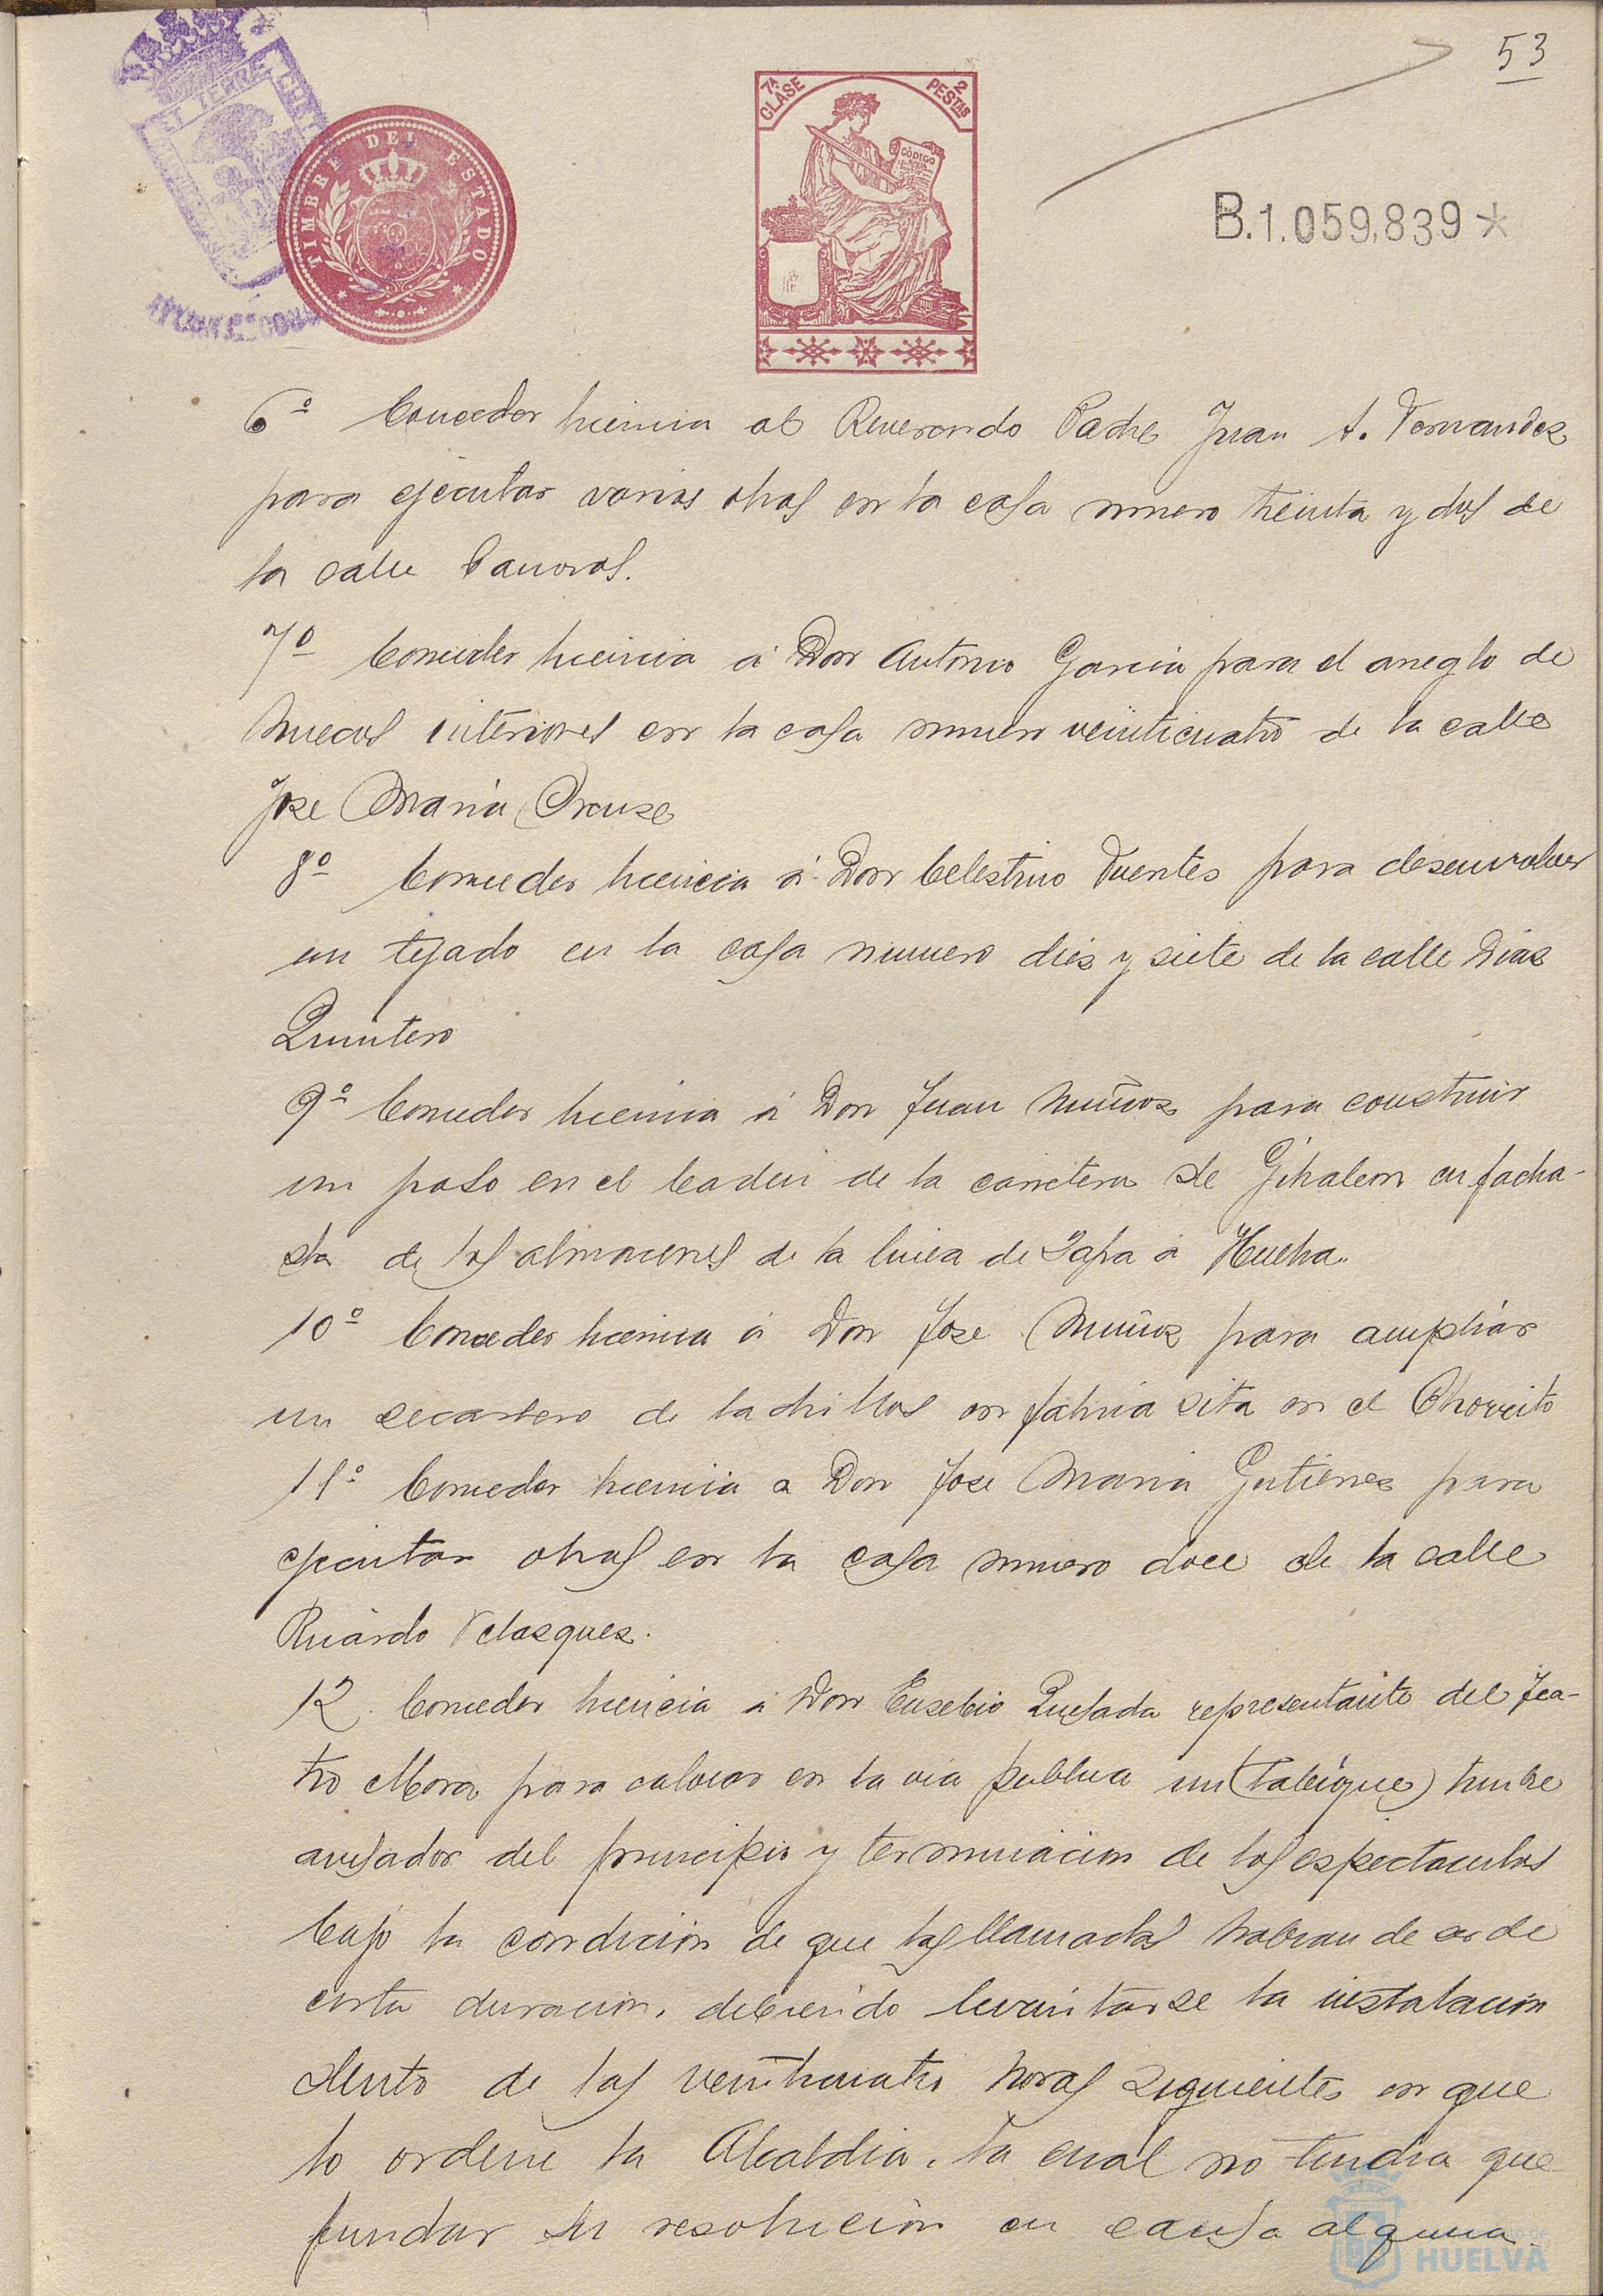 53
7ª CLASE
2 PESTAS
CÓDIGO
TIMBRE DEL ESTADO
B.1.059,839*
6º Conceder licencia al Reverendo Padre Juan A. Fernandez
para ejecutar varias obras en la casa numero treinta y dos de
la calle
7º Conceder licencia á Don Antonio Garcia para el arreglo de
huecos interiores en la casa numero veinticuatro de la calle
Jose Maria
8º Conceder licencia á Don Celestino Fuentes para desenvolver
un tejado en la casa numero diez y siete de la calle Diaz
Quintero
9º Conceder licencia á Don Juan Muñoz para construir
un paso en el de la carretera de Gibraleon en facha-
da de los almacenes de la linea de Zafra á Huelva.
10º Conceder licencia á Don Jose Muñoz para ampliar
un secadero de ladrillos en fabrica sita en el Chorrito
11º Conceder licencia a Don Jose Maria Gutierrez para
ejecutar obras en la casa numero doce de la calle
Ricardo Velazquez.
12. Conceder licencia á Don Eusebio Quesada representante del Tea-
tro Mora para colocar en la via publica un (tabique) timbre
avisador del principio y terminacion de los espectaculos
bajo la condicion de que las llamadas habran de ser de
corta duracion, debiendo levantarse la instalacion
dentro de las veinticuatro horas siguientes en que
lo ordene la Alcaldia, la cual no tendra que
fundar su resolucion en causa alguna.
HUELVA